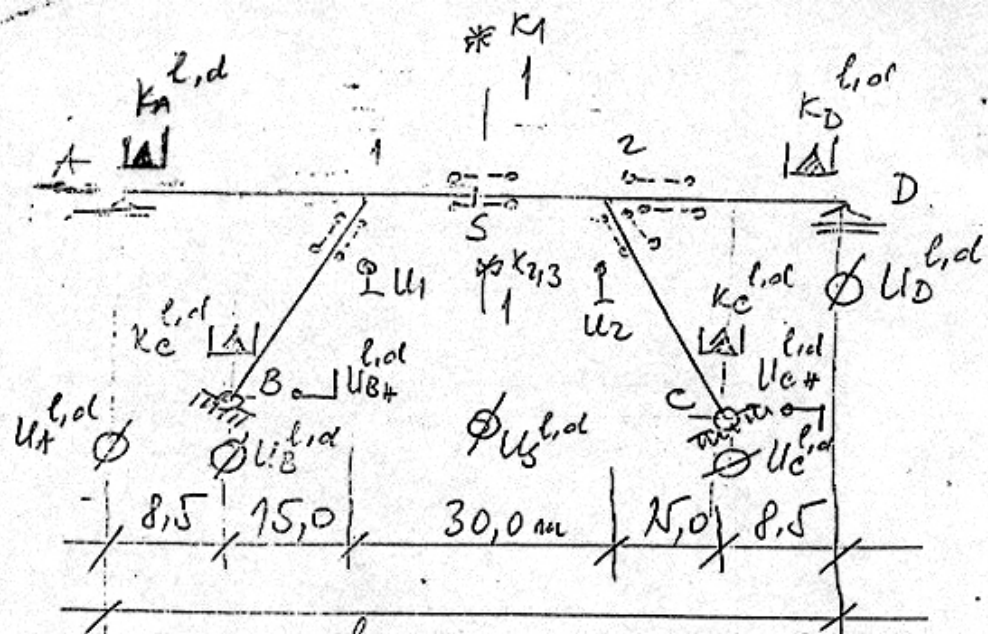 * K1
1
KA l,d
KD l,d
A
1
2
D
S
U1
K2,3
1
U2
KC l,d
UD l,d
KC l,d
B
UBH l,d
C
UCH l,d
UA l,d
UB l,d
US l,d
UC l,d
8,5 15,0 30,0 m 15,0 8,5